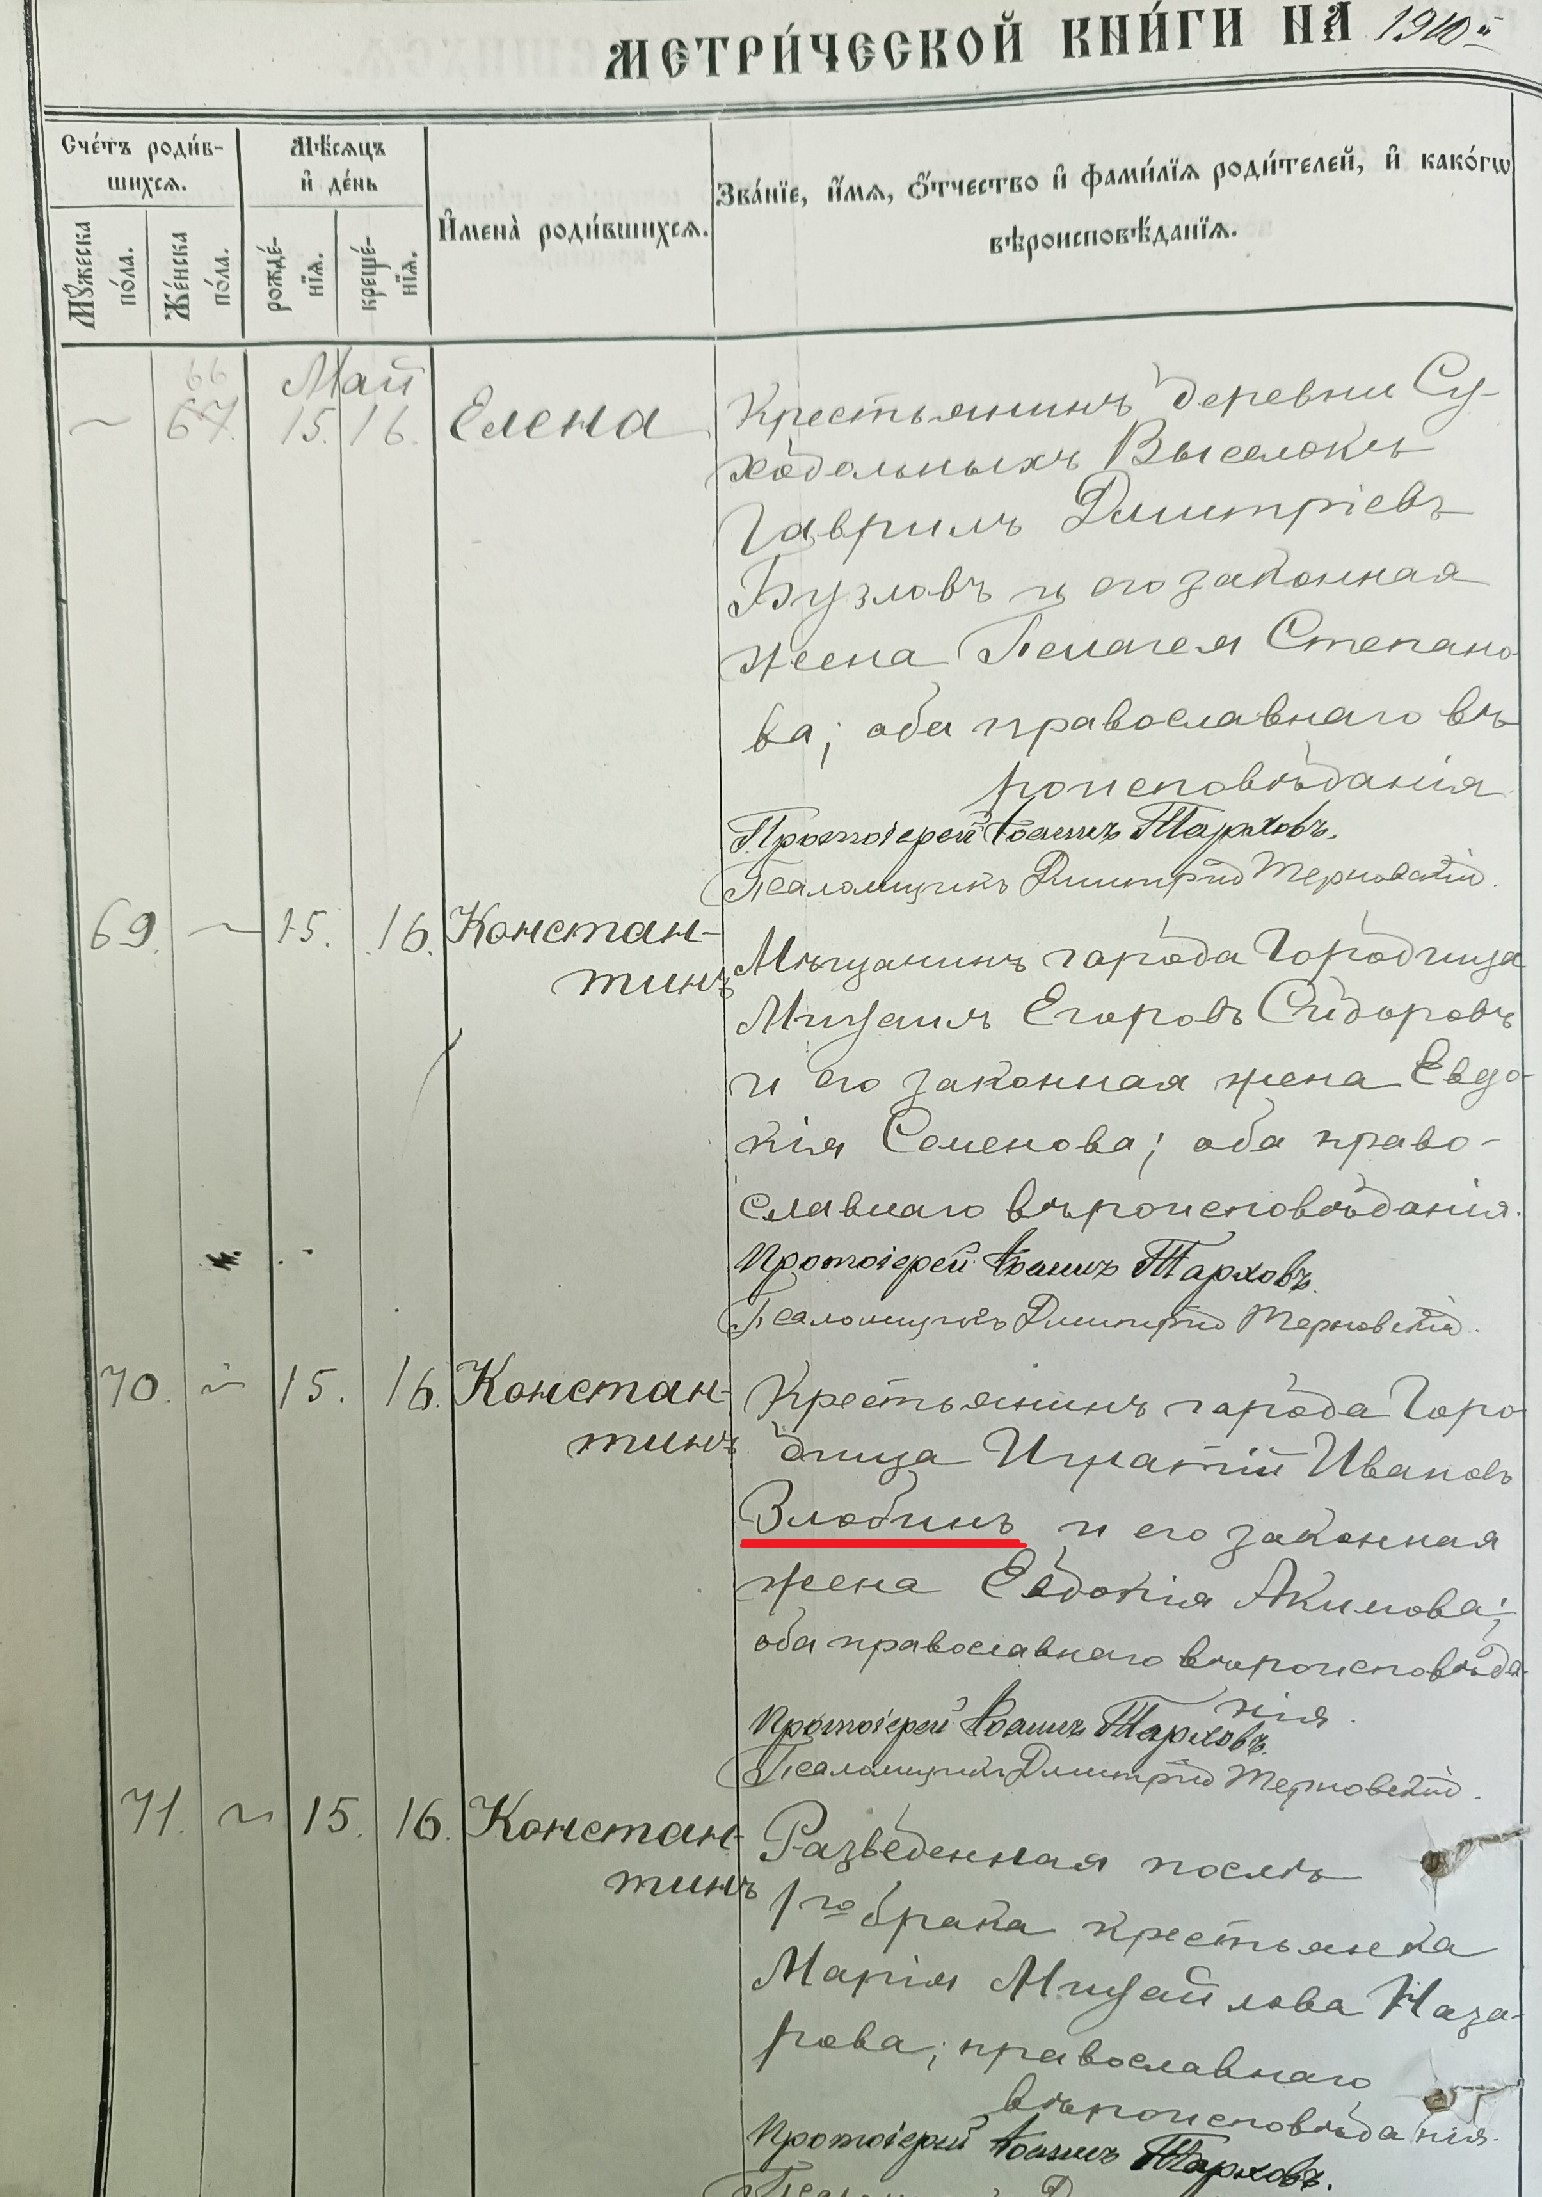 МЕТРИ́ЧЕСКОЙ КНИ́ГИ НА 1910й
Сче́тъ роди́в-
шихся.
Мѣ́сяцъ
и҆ де́нь
Мꙋ́жеска
по́ла.
Же́нска
по́ла.
рожде́-
нїя.
креще́-
нїя.
И҆мена̀ роди́вшихся.
Зва́нїе, и҆́мя, ѻ҆́тчество и҆ фами́лїя роди́телей, и҆ како́гѡ
вѣроисповѣ́данїя.
66
Май
~ 67. 15. 16. Елена
Крестьянинъ деревни Су-
ходольныхъ Выселокъ
Гаврилъ Дмитріевъ
Бузловъ и его законная
жена Пелагея Степано
ва; оба православнаго вѣ
роисповѣданія
Протоіерей Іоаннъ Тарховъ.
Псаломщикъ Димитрій Терновскій.
69. ~ 15. 16. Констан-
тинъ
Мѣщанинъ города Городища
Михаилъ Егоровъ Сидоровъ
и его законная жена Евдо-
кія Семенова; оба право-
славнаго вѣроисповѣданія.
Протоіерей Іоаннъ Тарховъ.
Псаломщикъ Димитрій Терновскій.
70. ~ 15. 16. Констан-
тинъ
Крестьянинъ города Горо
дища Игнатій Ивановъ
Злобинъ и его законная
жена Евдокія Акимова;
оба православнаго вѣроисповѣда-
нія.
Протоіерей Іоаннъ Тарховъ.
Псаломщикъ Димитрій Терновскій.
71. ~ 15. 16. Констан-
тинъ
Разведенная послѣ
1го брака крестьянка
Марія Михайлова Наза-
рова; православнаго
вѣроисповѣданія.
Протоіерей Іоаннъ Тарховъ.